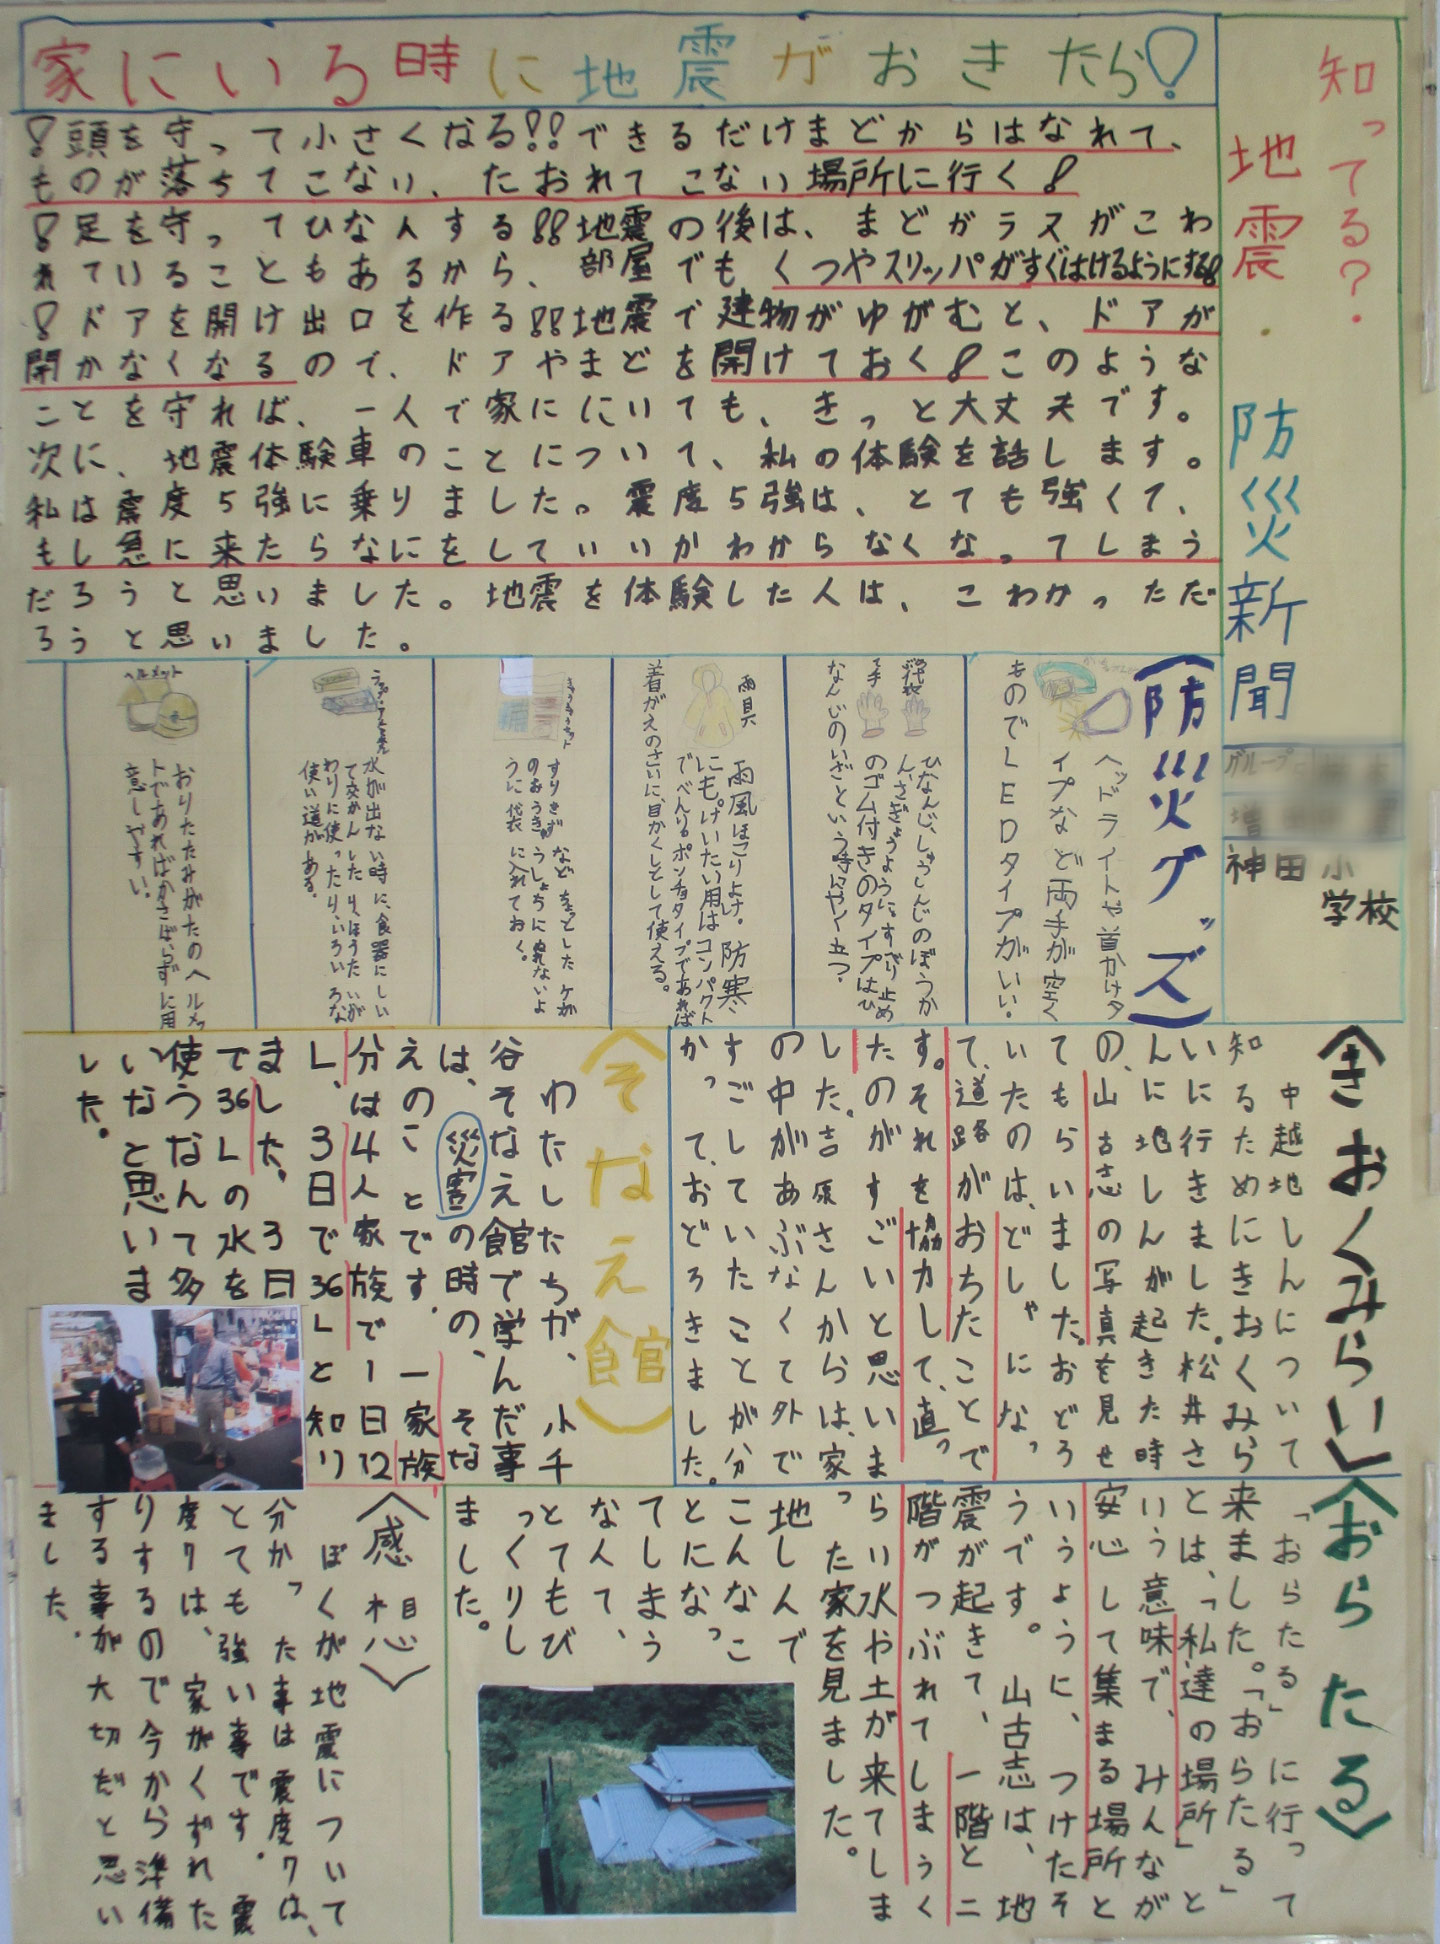 知ってる？
地震・防災新聞
グループ
増
神田小
学校
家にいる時に地震がおきたら！
！頭を守って小さくなる!!できるだけまどからはなれて、
ものが落ちてこない、たおれてこない場所に行く！
！足を守ってひなんする!!地震の後は、まどガラスがこわ
れていることもあるから、部屋でもくつやスリッパがすぐはけるようにする！
！ドアを開け出口を作る!!地震で建物がゆがむと、ドアが
開かなくなるので、ドアやまどを開けておく！このような
ことを守れば、一人で家ににいても、きっと大丈夫です。
次に、地震体験車のことについて、私の体験を話します。
私は震度5強に乗りました。震度5強は、とても強くて、
もし急に来たらなにをしていいかわからなくなってしまう
だろうと思いました。地震を体験した人は、こわかっただ
ろうと思いました。
（防災グッズ）
ヘッドライトや首かけタ
イプなど両手が空く
ものでLEDタイプがいい。
手袋
ひなんじ、しゅうしんじのぼうか
ん、さぎょうように。すべり止め
のゴム付きのタイプはひ
なんじのいざという時にやく立つ。
雨具
雨風ほこりよけ。防寒
にも。けいたい用はコンパクト
でべんり。ポンチョタイプであれば
着がえのさいに、目かくしとして使える。
きゅうきゅうセット
すりきずなどちょっとしたケガ
のおうきゅうしょちに。ぬれないよ
うに袋に入れておく。
水が出ない時に、食器にしい
て交かんしたり、ほうたいが
わりに使ったり、いろいろな
使い道がある。
ヘルメット
おりたたみがたのヘルメッ
トであればかさばらずに用
意しやすい。
〈きおくみらい〉
中越地しんについて
知るためにきおくみら
いに行きました。松井さ
んに地しんが起きた時
の、山古志の写真を見せ
てもらいました。おどろ
いたのは、どしゃになっ
て、道路がおちたことで
す。それを協力して、直っ
たのがすごいと思いま
した。吉原さんからは、家
の中があぶなくて外で
すごしていたことが分
かって、おどろきました。
〈そなえ館〉
わたしたちが、小千
谷そなえ館で学んだ事
は、災害の時の、そな
えのことです。一家族
分は4人家族で1日12
L、3日で36Lと知り
ました。3日
で36Lの水を
使うなんて多
いなと思いま
した。
〈おらたる〉
「おらたる」に行って
来ました。「おらたる」
とは、「私達の場所」と
いう意味で、みんなが
安心して集まる場所と
いうように、つけたそ
うです。山古志は、地
震が起きて、一階と二
階がつぶれてしまうく
らい水や土が来てしま
った家を見ました。
地しんで
こんなこ
とになっ
てしまう
なんて、
とてもび
っくりし
ました。
〈感想〉
ぼくが地震について
分かった事は震度7は、
とても強い事です。震
度7は、家がくずれた
りするので今から準備
する事が大切だと思い
ました。